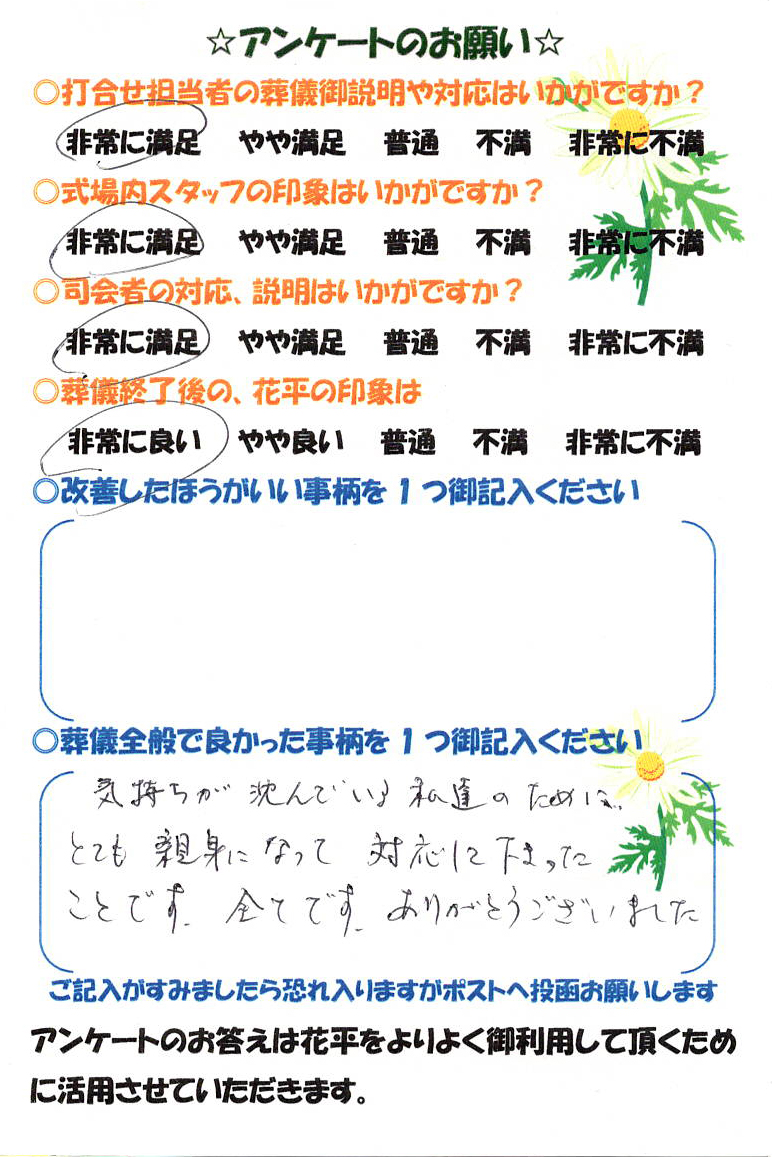 ☆アンケートのお願い☆
○打合せ担当者の葬儀御説明や対応はいかがですか？
非常に満足 やや満足 普通 不満 非常に不満
○式場内スタッフの印象はいかがですか？
非常に満足 やや満足 普通 不満 非常に不満
○司会者の対応、説明はいかがですか？
非常に満足 やや満足 普通 不満 非常に不満
○葬儀終了後の、花平の印象は
非常に良い やや良い 普通 不満 非常に不満
○改善したほうがいい事柄を１つ御記入ください
○葬儀全般で良かった事柄を１つ御記入ください
気持ちが沈んでいる私達のために、
とても親身になって対応して下さった
ことです。全てです。ありがとうございました
ご記入がすみましたら恐れ入りますがポストへ投函お願いします
アンケートのお答えは花平をよりよく御利用して頂くため
に活用させていただきます。